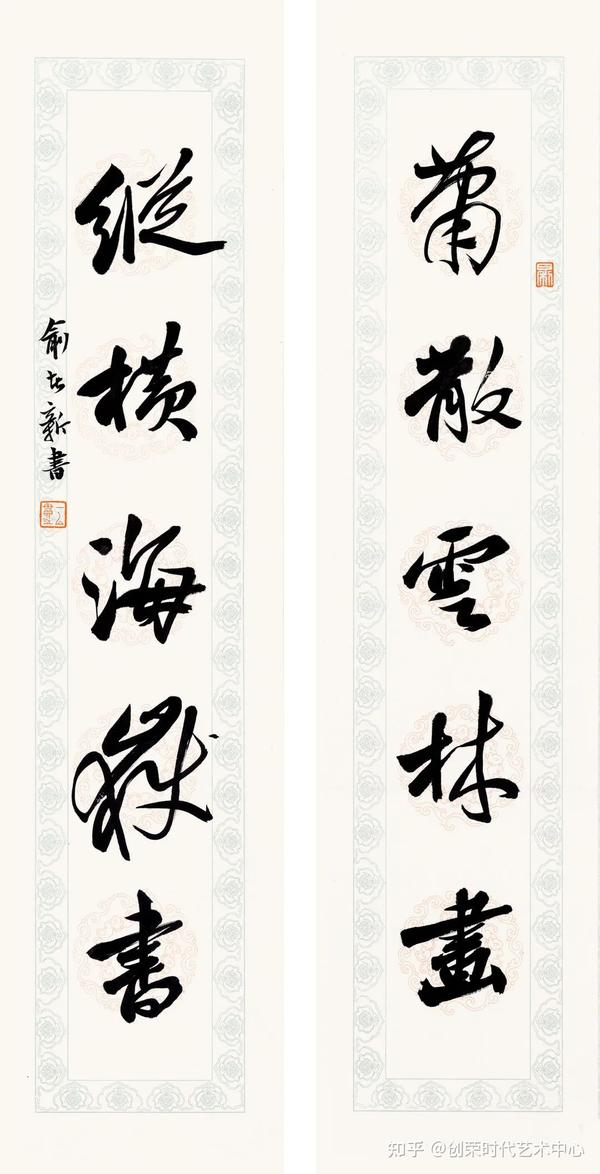 蕭散雲林畫
縱橫海嶽書
俞友新書
知乎 @创荣时代艺术中心